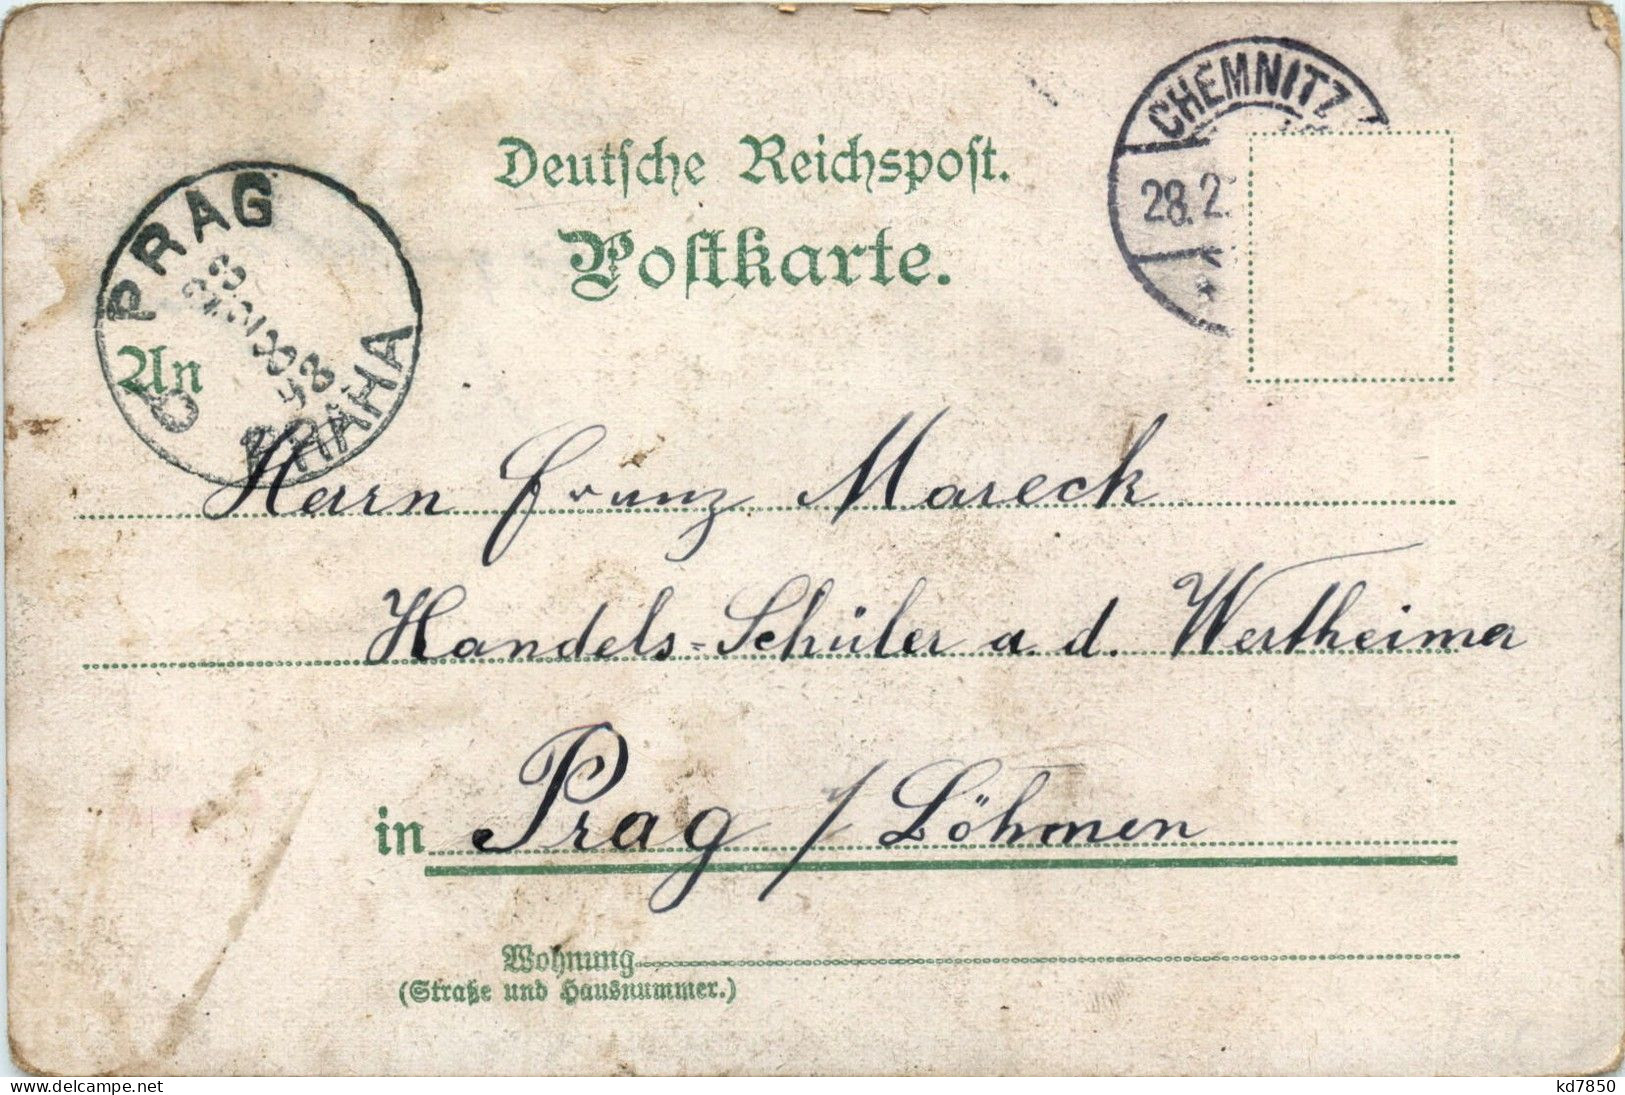 CHEMNITZ
28.2.
Deutsche Reichspost.
Postkarte.
PRAG
98
PRAHA
An
Herrn Franz Mareck
Handels-Schüler a. d. Wertheimer
in Prag / Böhmen
Wohnung
(Straße und Hausnummer.)
delcampe.net
kd7850